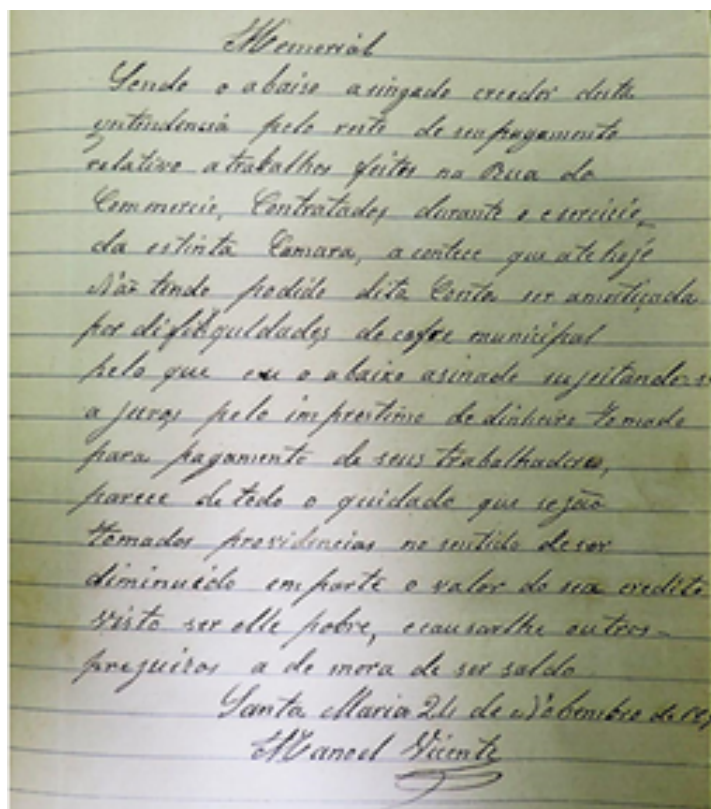 Memorial
Sendo o abaixo asingado creedor desta
yntendencia pelo reste de seu pagamento
relativo a trabalhos feitos na Rua do
Commercio, Contratados durante o esercicio
da estinta Camara, acontece que ate hoje
Não tendo podido dita Conta ser amortiçada
por do cofre municipal
pelo que eu o abaixo asinado sujeitando-s
a juros pelo imprestimo de dinheiro tomado
para pagamento de seus trabalhadores,
parece de todo o quidado que sejão
tomados providencias no sentido de ser
diminuido em parte o valor do seu credito
visto ser elle pobre, e causarlhe outros
prejuizos a demora de ser saldo
Santa Maria 24 de Nobembro de
Manoel Vicente